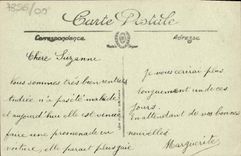 7856/00
Carte Postale
Correspondance
Adresse
Chère Suzanne
Nous sommes très bien rentrés
Andrée n'a pas été malade
et aujourd'hui elle est venue
faire une promenade en
voiture, elle parait plus gaie
Je vous écrirai plus
longuement un de ces
jours
En attendant de vos bonnes
nouvelles
Marguerite